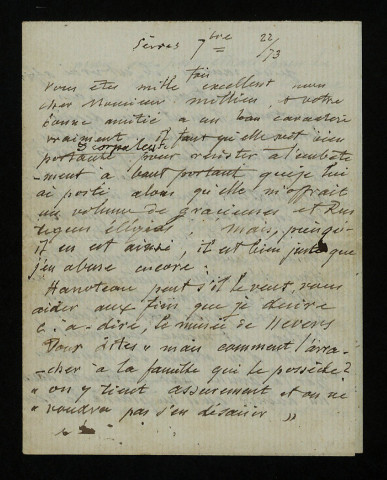 Sèvres 7bre 22/73
Vous êtes mille fois excellent mon
cher Monsieur Millien, & votre
bonne amitié a un bon caractère
vraiment il faut qu'elle soit bien
& corpulente
portante pour résister à l'embête
-ment à bout portant que je lui
ai porté alors qu'elle m'offrait
un volume de gracieuses et Rus
tiques élégies; mais, puisqu'
il en est ainsi, il est bien juste que
j'en abuse encore:
Hanoteau peut s'il le veut, vous
aider aux fins que je désire
c. a-dire, le musée de Nevers
Vous dites "mais comment l'arra-
-cher à la famille qui le possède?
"on y tient assurement et on ne
"voudra pas s'en désaisir"